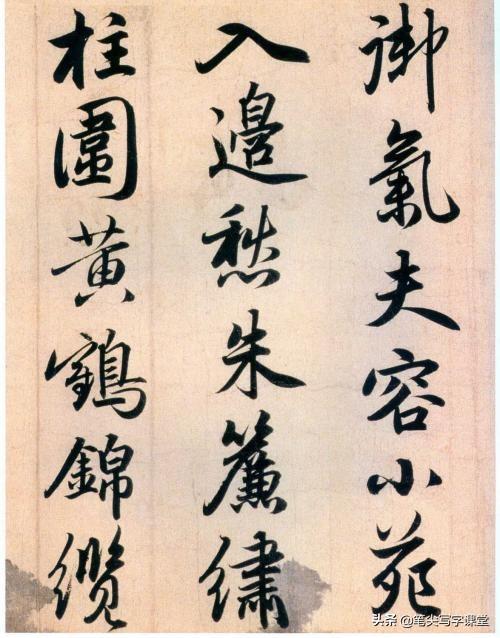 御氣夫容小苑
入邊愁朱簾繡
柱圍黃鶴錦纜
头条@笔尖写字课堂